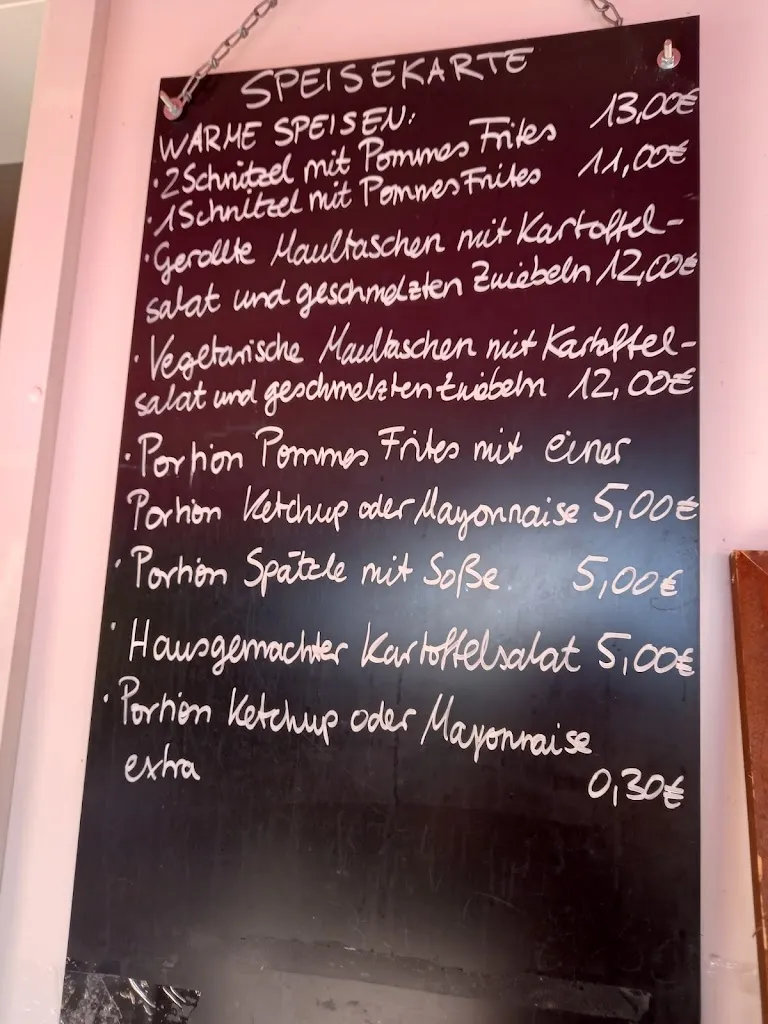 SPEISEKARTE
WARME SPEISEN:
· 2 Schnitzel mit Pommes Frites 13,00€
· 1 Schnitzel mit Pommes Frites 11,00€
· Gerollte Maultaschen mit Kartoffel-
salat und geschmelzten Zwiebeln 12,00€
· Vegetarische Maultaschen mit Kartoffel-
salat und geschmelzten Zwiebeln 12,00€
· Portion Pommes Frites mit einer
Portion Ketchup oder Mayonnaise 5,00€
· Portion Spätzle mit Soße 5,00€
· Hausgemachter Kartoffelsalat 5,00€
· Portion Ketchup oder Mayonnaise
extra 0,30€